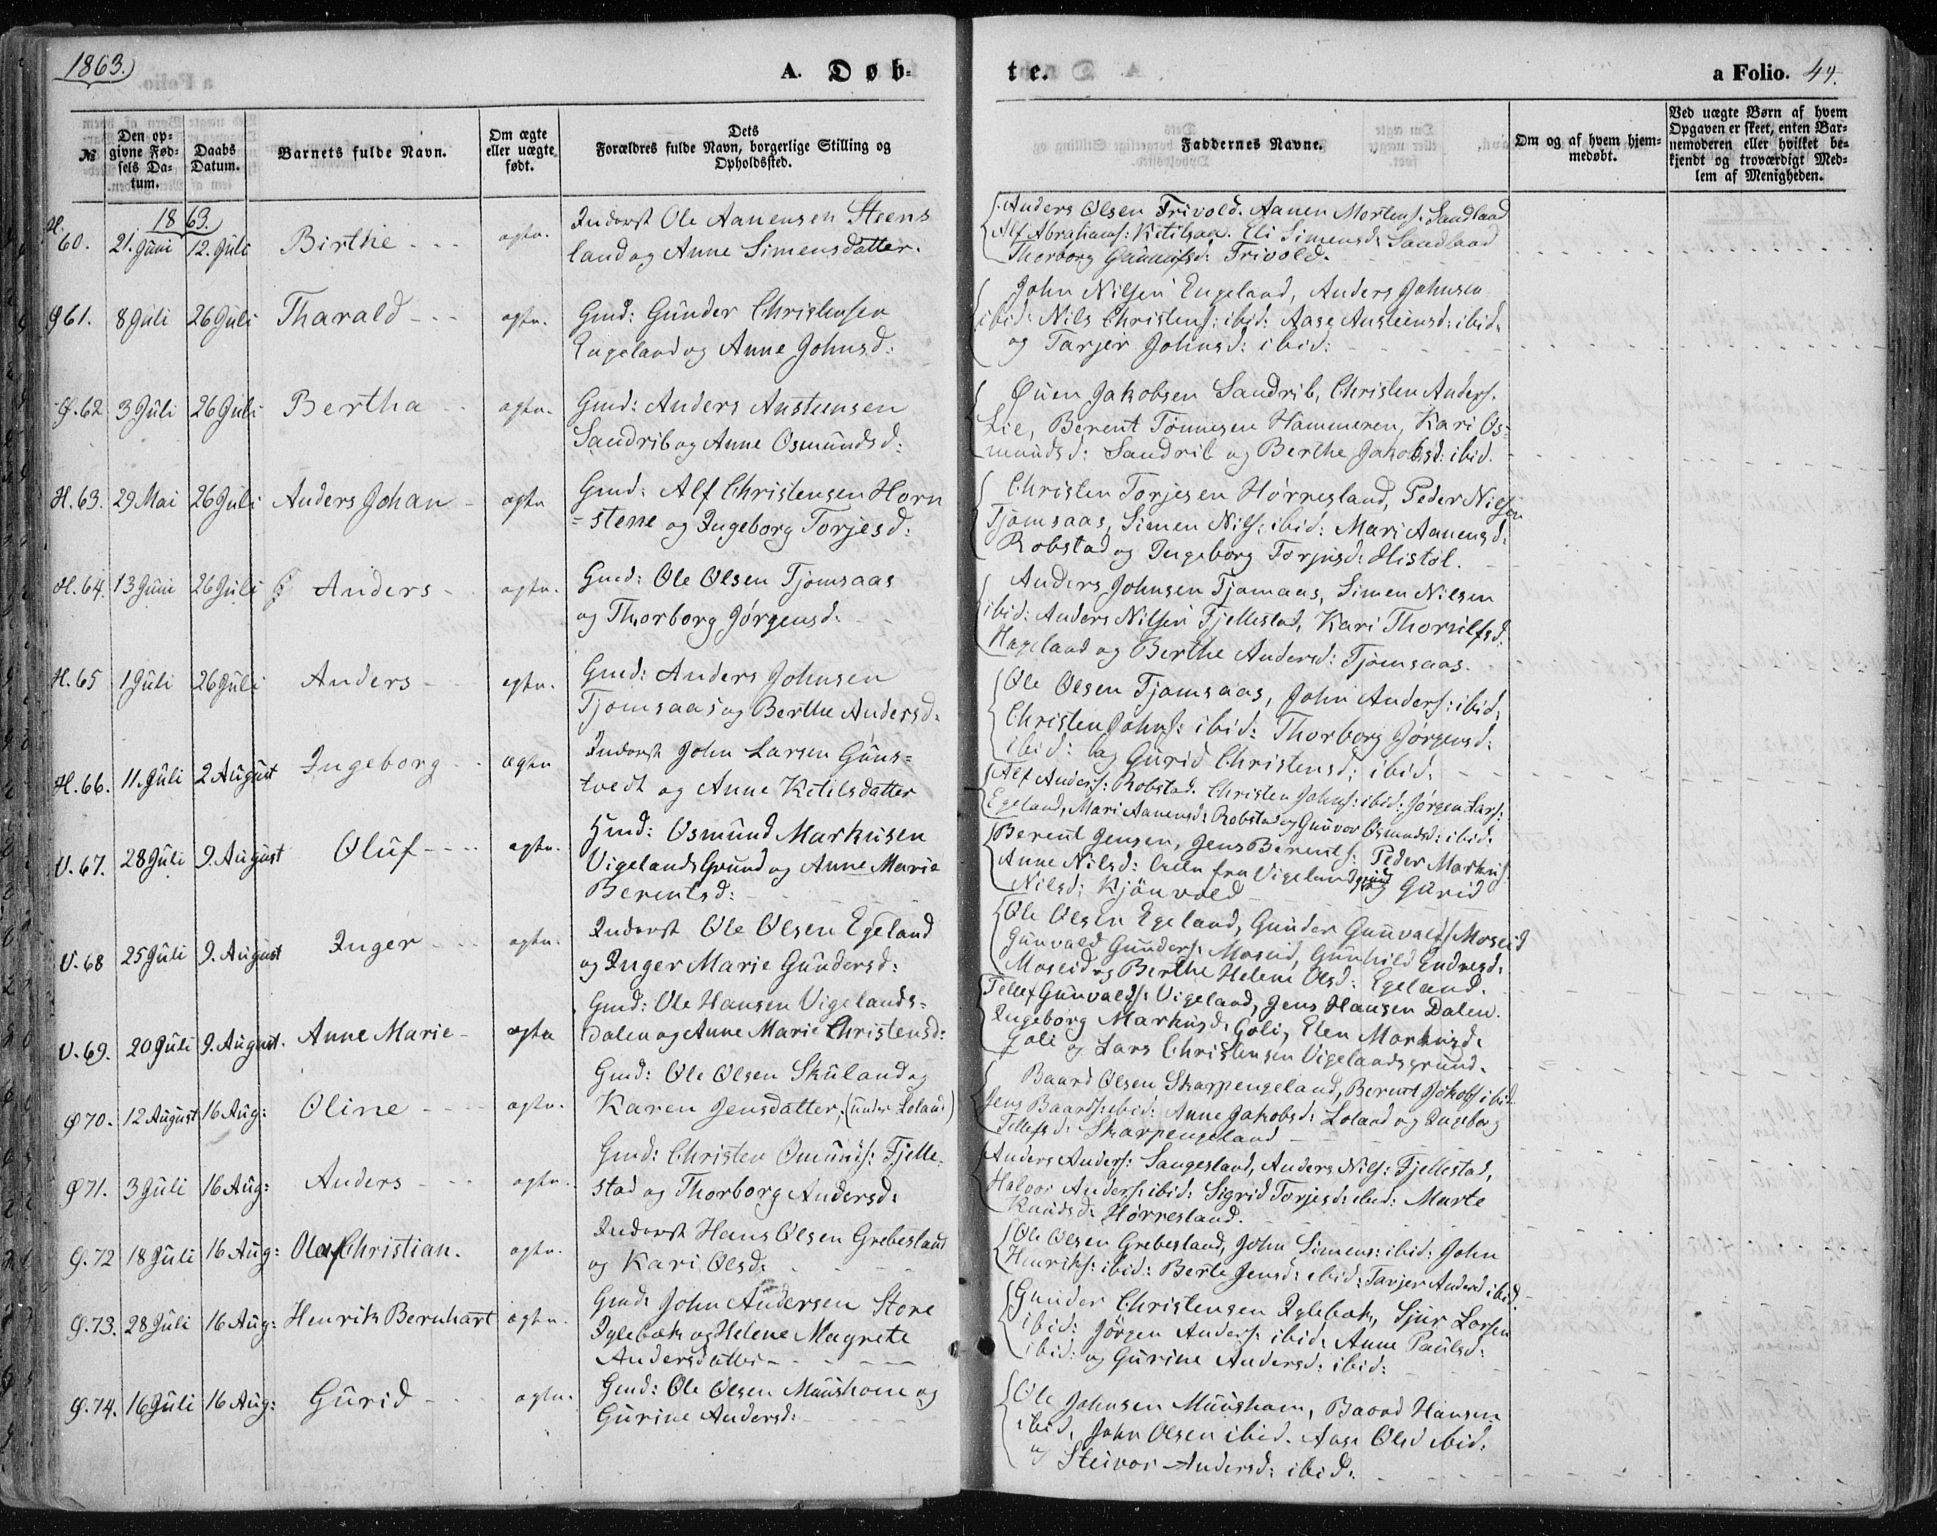 1863.
A. Døb-
te.
a Folio. 44.
№
Den opgivne Fødsels Datum.
Daabs Datum.
Barnets fulde Navn.
Om ægte eller uægte født.
Dets Forældres fulde Navn, borgerlige Stilling og Opholdssted.
Faddernes Navne.
Om og af hvem hjemmedøbt.
Ved uægte Børn af hvem Opgaven er skeet, enten Barnemoderen eller hvilket bekjendt og troværdigt Medlem af Menigheden.
1863.
H. 60. 21. Juni 12. Juli Birthe ægte.
Inderst Ole Aanensen Steens
land og Anne Simensdatter.
Anders Olsen Trivold. Aanen Mortens: Sandland
Alf Abrahams: Ketilsaa. Eli Simensd: Sandland
Thorborg Gunulfsd: Trivold.
Ø 61. 8 Juli 26 Juli Tharald ægte.
Gmd: Gunder Christensen
Engeland og Anne Johnsd:
John Nilsen Engeland, Anders Johnsen
ibid: Nils Christens: ibid: Aase Austeinsd: ibid:
og Tarjer Johnsd: ibid:
Ø. 62 3 Juli 26 Juli Bertha ægte.
Gmd: Anders Austensen
Sandrib og Anne Osmundsd:
Øuen Jakobsen Sandrib, Christen Anders.
Lie, Berent Tønnesen Hammeren, Kari Os-
mundsd: Sandrib og Berthe Jakobsd: ibid.
H. 63. 29 Mai 26 Juli Anders Johan ægte
Gmd: Alf Christensen Horn
=stene og Ingeborg Torjesd:
Christen Torjesen Hørresland, Peder Nilsen
Tjomsaas, Simen Nils: ibid: Mari Aanensd:
Robstad og Ingeborg Torjusd: Histøl.
H. 64. 13 Juni 26 Juli Anders ægte.
Gmd: Ole Olsen Tjomsaas
og Thorborg Jørgensd.
Anders Johnsen Tjomaas, Simen Nilsen
ibid: Anders Nilsen Fjellestad, Kari Thorulfsd.
Hageland og Berthe Andersd: Tjomsaas.
H. 65 1 Juli 26 Juli Anders ægte.
Gmd: Anders Johnsen
Tjomsaas og Berthe Andersd.
Ole Olsen Tjomsaas, John Anders: ibid:
Christen Johns: ibid: Thorborg Jørgensd:
ibid: og Gurid Christensd: ibid:
H. 66. 11. Juli 2 August Ingeborg ægte
Inderst John Larsen Guns=
tvedt og Anne Ketilsdatter
Alf Anders: Robstad. Christen Johns: ibid: Jørgen Lars:
Egeland, Mari Aanensd: Robstad og Gunvor Osmundsd: ibid:
V. 67. 28 Juli 9. August Oluf ægte.
Gmd: Osmund Markusen
Vigelands Grund og Anne Marie
Berentsd:
Berent Jensen, Jens Berents: Peder Markus:
Anne Nilsd: Alle fra Vigelandsgrund og Gurid
Nilsd: Kjønvold
V. 68 25 Juli 9. August Inger ægte.
Inderst Ole Olsen Egeland
og Inger Marie Gundersd:
Ole Olsen Egeland, Gunder Gunvalds: Moseid
Gunvald Gunders: Moseid, Gunhild Endresd:
Moseid og Berthe Helene Olsd: Egeland.
V. 69. 20 Juli 9. August. Anne Marie ægte
Gmd: Ole Hansen Vigelands=
dalen og Anne Marie Christensd:
Tellef Gunvalds: Vigeland, Jens Hansen Dalen.
Ingeborg Markusd: Goli, Elen Markusd:
Goli og Lars Christensen Vigelandsgrund.
Ø 70. 12 August 16 Aug: Oline ægte.
Gmd: Ole Olsen Skuland og
Karen Jensdatter, (under Loland)
Baard Olsen Skarpengeland, Berent Jakobs: ibid
Jens Baards: ibid: Anne Jakobsd: Loland og Ingeborg
Tellefsd: Skarpengeland
Ø 71. 3 Juli 16 Aug: Anders ægte.
Gmd: Christen Omunds: Fjelle-
stad og Thorborg Andersd:
Anders Anders: Sangesland, Anders Nils: Fjellestad,
Halvor Anders: ibid: Sigrid Torjesd: ibid: Marte
Knudsd: Hørresland.
Ø. 72 18 Juli 16 Aug: Olaf Christian. ægte.
Inderst Hans Olsen Grebesland
og Kari Olsd:
Ole Olsen Grebesland, John Simens: ibid: John
Henriks: ibid: Berte Jensd: ibid: Tarjer Andersd ibid.
Ø. 73. 28 Juli 16 Aug: Henrik Bernhart ægte.
Gmd: John Andersen Store
Iglebæk og Helene Magrete
Andersdatter
Gunder Christensen Iglebæk, Sjur Larsen
ibid: Jörgen Anders: ibid: Anne Paulsd:
ibid: og Gurine Andersd: ibid:
Ø. 74. 16 Juli 16 Aug: Gurid ægte.
Gmd: Ole Olsen Muushom og
Gurine Andersd:
Ole Johnsen Muushom, Baard Hansen
ibid, John Olsen ibid. Aase Olsd ibid:
og Steivor Andersd: ibid: